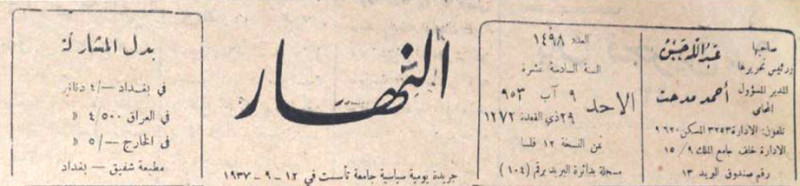 صاحبها
ورئيس تحريرها
عبد الله حسن
المدير المسؤول
أحمد مدحت
المحامي
تلفون: الادارة ٣٢٥٣ المسكن ٩٦٢٠
الادارة خلف جامع الملك ٩/ ١٥
رقم صندوق البريد ١٣
العدد ١٤٩٨
السنة السادسة عشرة
الاحد
٩ آب ٩٥٣
٢٩ ذي القعدة ١٢٧٢
ثمن النسخة ١٢ فلسا
مسجلة بدائرة البريد برقم (١٠٤)
النهار
جريدة يومية سياسية جامعة تأسست في ١٢-٩-١٩٣٧
بدل المشاركة
في بغداد ـ/٤ دنانير
في العراق ٤/٥٠٠ »
في الخارج ـ/٥ »
مطبعة شفيق - بغداد